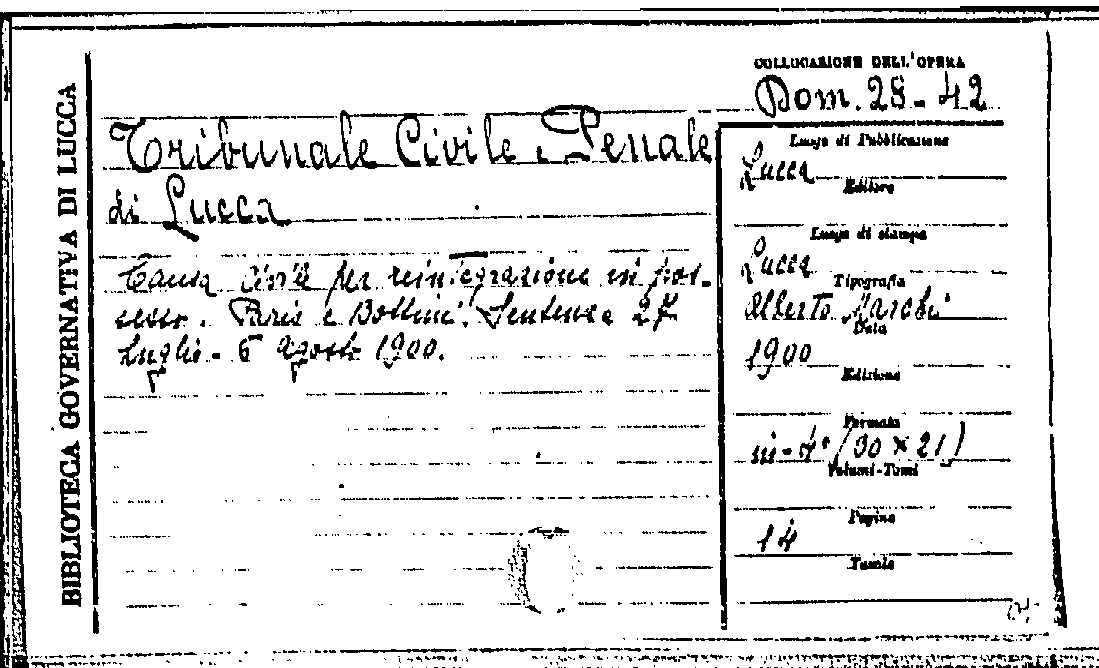 BIBLIOTECA GOVERNATIVA DI LUCCA
COLLOCAZIONE DELL'OPERA
Dom. 28-42
Tribunale Civile e Penale
di Lucca
Causa civile per reintegrazione in pos-
sesso. Paris e Bottini. Sentenza 27
Luglio - 6 Agosto 1900.
Luogo di Pubblicazione
Lucca
Editore
Luogo di stampa
Lucca
Tipografia
Alberto Marchi
Data
1900
Edizione
Formato
in-4° (30 x 21)
Volumi-Tomi
Pagine
14
Tavole